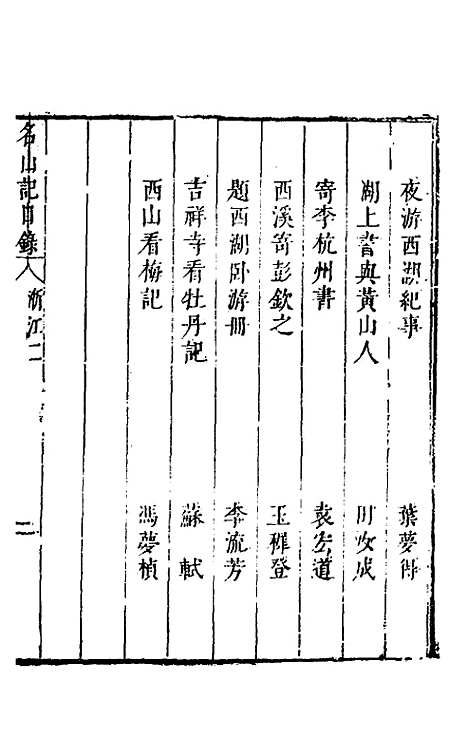 夜游西湖紀事 葉夢得
湖上書與黃山人 田汝成
寄李杭州書 袁宏道
西溪寄彭欽之 王穉登
題西湖卧游冊 李流芳
吉祥寺看牡丹記 蘇軾
西山看梅記 馮夢禎
名山記目錄 浙江二 二